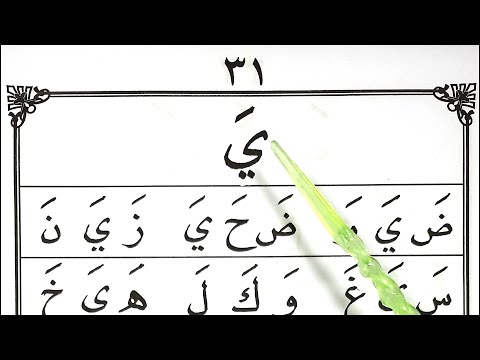 ٣١
يَ
ضَ يَ ضَ حَ يَ زَ يَ نَ
سَ يَ غَ وَ كَ لَ هَ يَ خَ